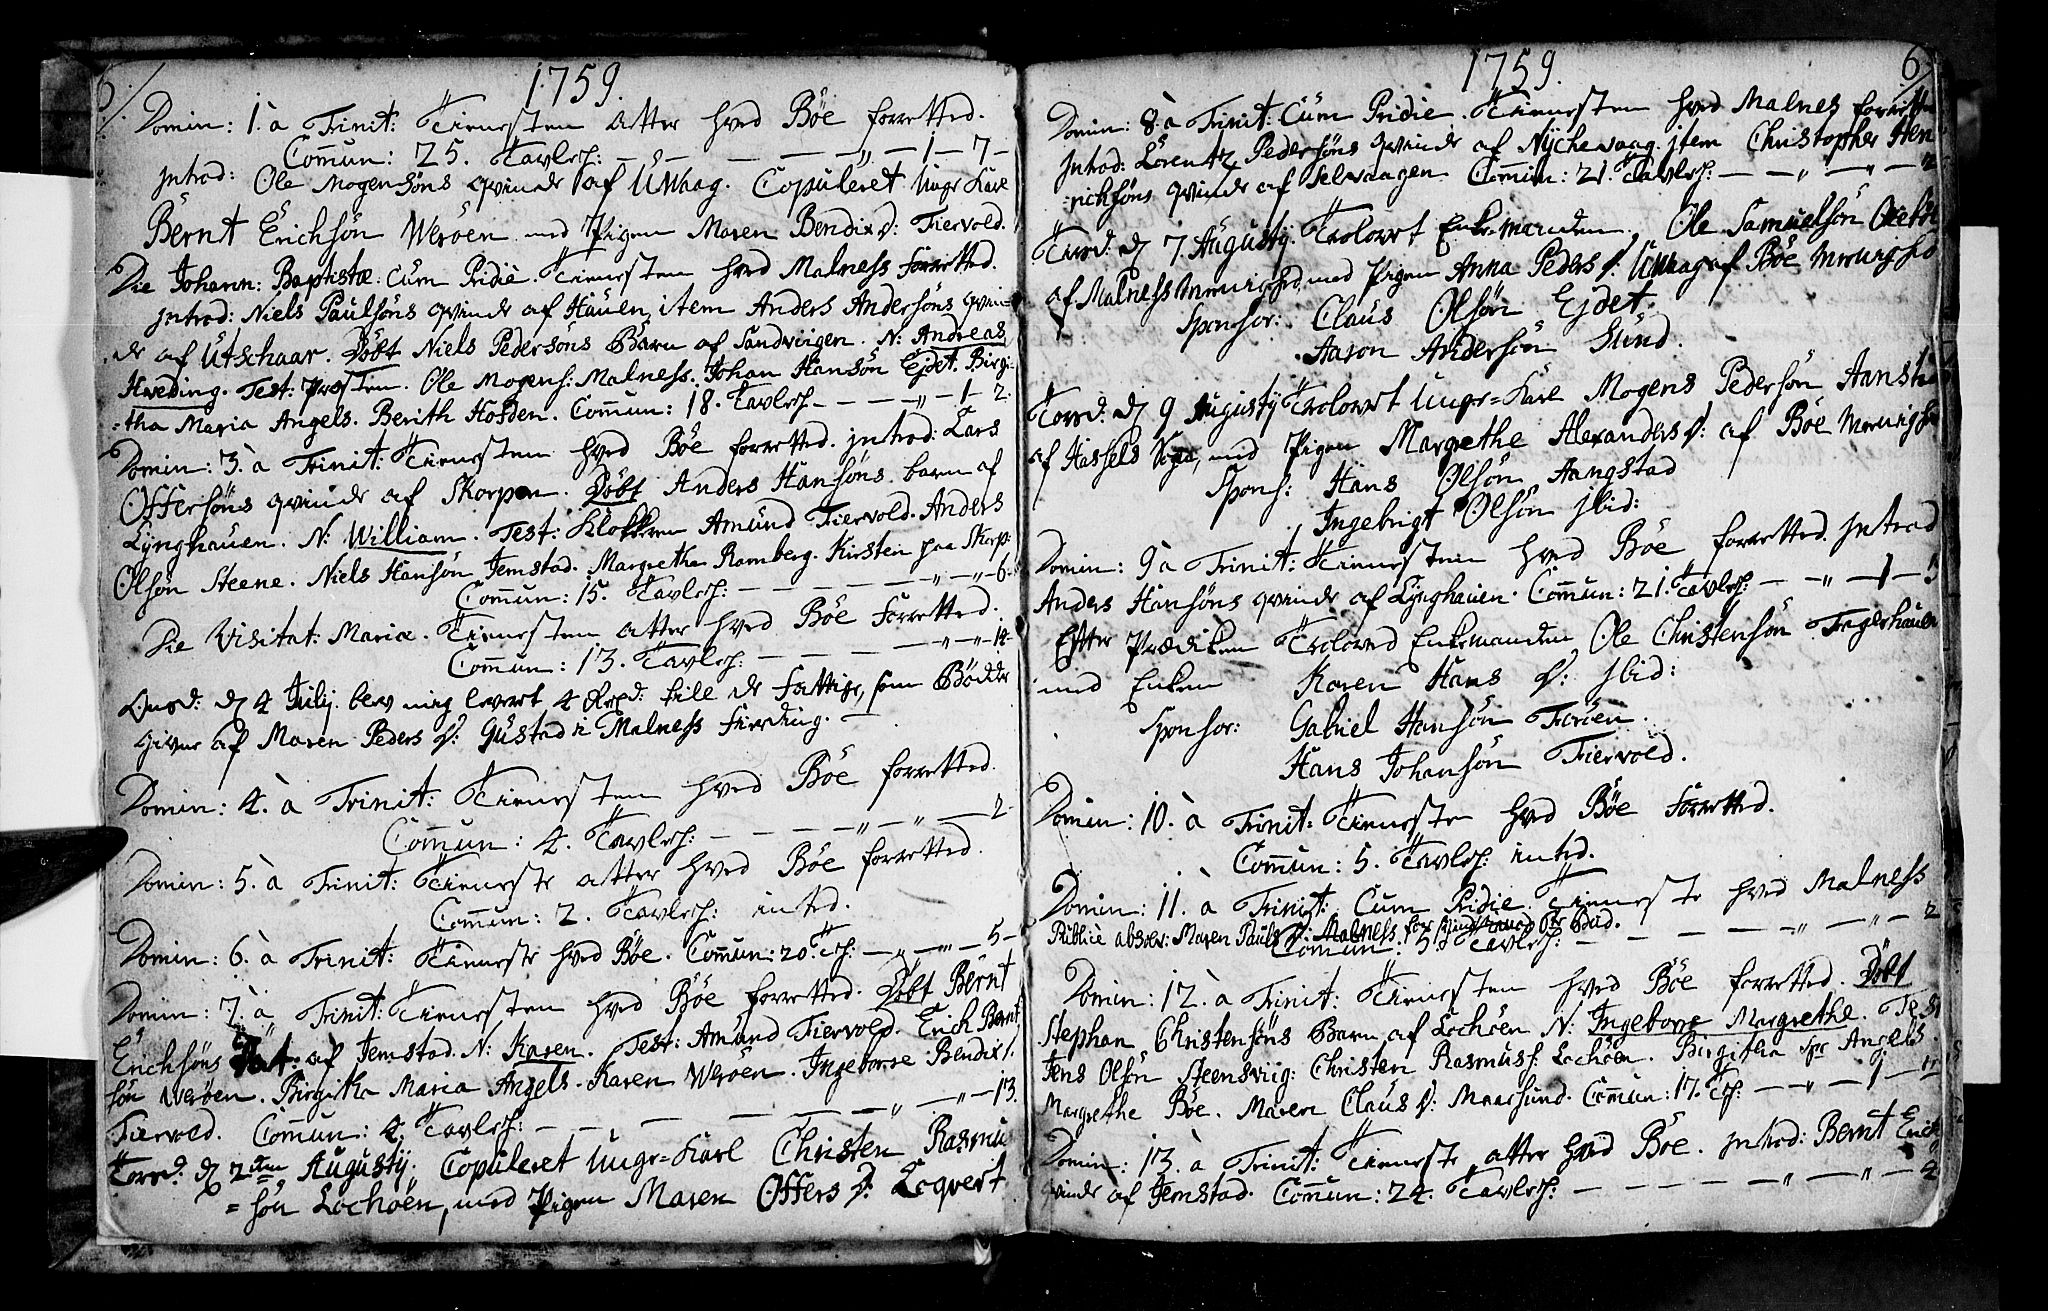 6/.
1759.
Domin: 1. à Trinit: Tienesten atter hved Böe forretted.
Comun: 25. Tavlesch: — — — — „ — 1 — 7 —
Introd: Ole Mogensöns qvinde af Uwaag. Copuleret Unge Karl
Bernt Erichsön Weröen med Pigen Maren Bendix D: Fiervold.
Die Johann: Baptistæ. Cum Pridie. Tienesten hved Malness forretted.
Introd: Niels Paulsöns qvinde af Hauen, item Anders Andersöns qvin-
de af Utschaar. Döbt Niels Pedersöns Barn af Sandvigen. N: Andreas
Hveding. Test: Præsten. Ole Mogens: Malness. Johan Hansön Ejdet. Birgi-
=tha Maria Angels. Berith Hofden. Comun: 18. Tavlesch — — — „ — 1 — 2.
Domin: 3. à Trinit: Tienesten hved Böe forretted. Introd: Lars
Offersöns qvinde af Skorpen. Döbt Anders Hansöns barn af
Lynghauen. N: William. Test: Klokkeren Amund Fiervold. Anders
Olsön Steene. Niels Hansön Jemstad. Margretha Ramberg. Kirsten paa Skorp:
Comun: 15. Tavlesch: — — — — — „ — „ — 6 —
Die Visitat: Mariæ. Tienesten atter hved Böe forretted.
Comun: 13. Tavlesch: — — — — — „ — „ — 14 —
Onsd: d 4 July. blev mig levert 4 Rixd: till de fattige, som Bödder
givne af Maren Peders D: Gustad i Malness Fierding. —
Domin: 4. à Trinit: Tienesten hved Böe forretted.
Comun: 4. Tavlesch: — — — — „ — „ — 2 —
Domin: 5. à Trinit: Tieneste atter hved Böe forretted.
Comun: 2. Tavlesch: inted.
Domin: 6. à Trinit: Tieneste hved Böe. Comun: 20. Tsch: — „ — „ — 5 —
Domin: 7. à Trinit: Tienesten hved Böe forretted. Döbt Bernt
Erichsöns af Jemstad. N: Karen. Test: Amund Fiervold. Erich Bernt
sön Weröen. Birgitha Maria Angels. Karen Weröen. Ingeborre Bendix D.
Fiervold. Comun: 4. Tavlesch: — — — — — „ — „ — 13.
Torsd: d 2den Augusty. Copuleret Unge=Karl Christen Rasmu
=sön Lochöen, med Pigen Maren Offers D: Loqvert
1759.
6/
Domin: 8. à Trinit: Cum Pridie. Tienesten hved Malnes forretted
Introd: Lorentz Pedersöns qvinde af Nychevaag. item Christopher Hen
=richsöns qvinde af Selvaagen. Comun: 21. Tavlesch: — — „ — „ —
Tirsd: d 7 Augusty. Trolovet Enkemanden Ole Samuelsön
af Malness Menighed, med Pigen Anna Peders D: Uwaag af Böe Menighed
Sponsor: Claus Olsön Ejdet.
Aaron Andersön Sund.
Torsd: d 9 Augusty Trolovet Unge=Karl Mogens Pedersön
af Hassels, med Pigen Margrethe Alexanders D: af Böe Menighed
Spons: Hans Olsön Aangstad
Ingebrigt Olsön Ibid:
Domin: 9 à Trinit: Tienesten hved Böe forretted. Introd
Anders Hansöns qvinde af Lynghauen. Comun: 21. Tavlesch: — — „ — 1 —
Efter Prædiken Troloved Enkemanden Ole Christensön
med Enken Karen Hans D: Ibid:
Sponsor: Gabriel Hansön
Hans Johansön Fiervold.
Domin: 10. à Trinit: Tienesten hved Böe forretted.
Comun: 5. Tavlesch: inted.
Domin: 11. à Trinit: Cum Pridie Tieneste hved Malness
Publice absolv: Maren Pauls D: Malness
Comun: 5. Tavlesch: — — — — — „ — „ — 2
Domin: 12. à Trinit: Tienesten hved Böe forretted. Döbt
Stephan Christensöns Barn af Lochöen N: Ingeborre Margrethe. Test
Jens Olsön Steensviig. Christen Rasmus: Lochöen. Birgitha Angels.
Margrethe Böe. Maren Claus D: Maarsund. Comun: 17. Tsch: — — „ — 1 —
Domin: 13. à Trinit: Tieneste atter hved Böe. Introd: Bernt Erich
qvinde af Jemstad. Comun: 24. Tavlesch: — — — — — „ — „ — 4